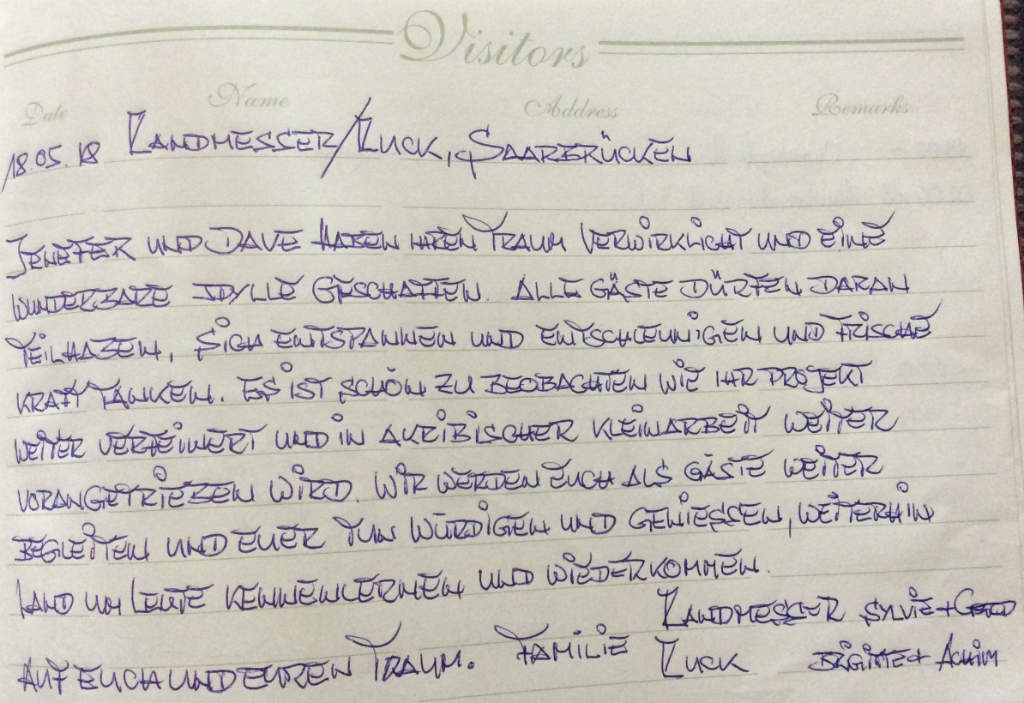 Visitors
Date Name Address Remarks
18.05.18 LANDMESSER/LUCK, SAARBRÜCKEN
JENEFER UND DAVE HABEN IHREN TRAUM VERWIRKLICHT UND EINE
WUNDERBARE IDYLLE GESCHAFFEN. ALLE GÄSTE DÜRFEN DARAN
TEILHABEN, SICH ENTSPANNEN UND ENTSCHLEUNIGEN UND FRISCHE
KRAFT TANKEN. ES IST SCHÖN ZU BEOBACHTEN WIE IHR PROJEKT
WEITER VERFEINERT UND IN AKRIBISCHER KLEINARBEIT WEITER
VORANGETRIEBEN WIRD. WIR WERDEN EUCH ALS GÄSTE WEITER
BEGLEITEN UND EUER TUN WÜRDIGEN UND GENIESSEN, WEITERHIN
LAND UN LEUTE KENNENLERNEN UND WIEDERKOMMEN.
LANDMESSER SYLVIE + GERD
AUF EUCH UND EUREN TRAUM. FAMILIE LUCK BRIGITTE + ACHIM